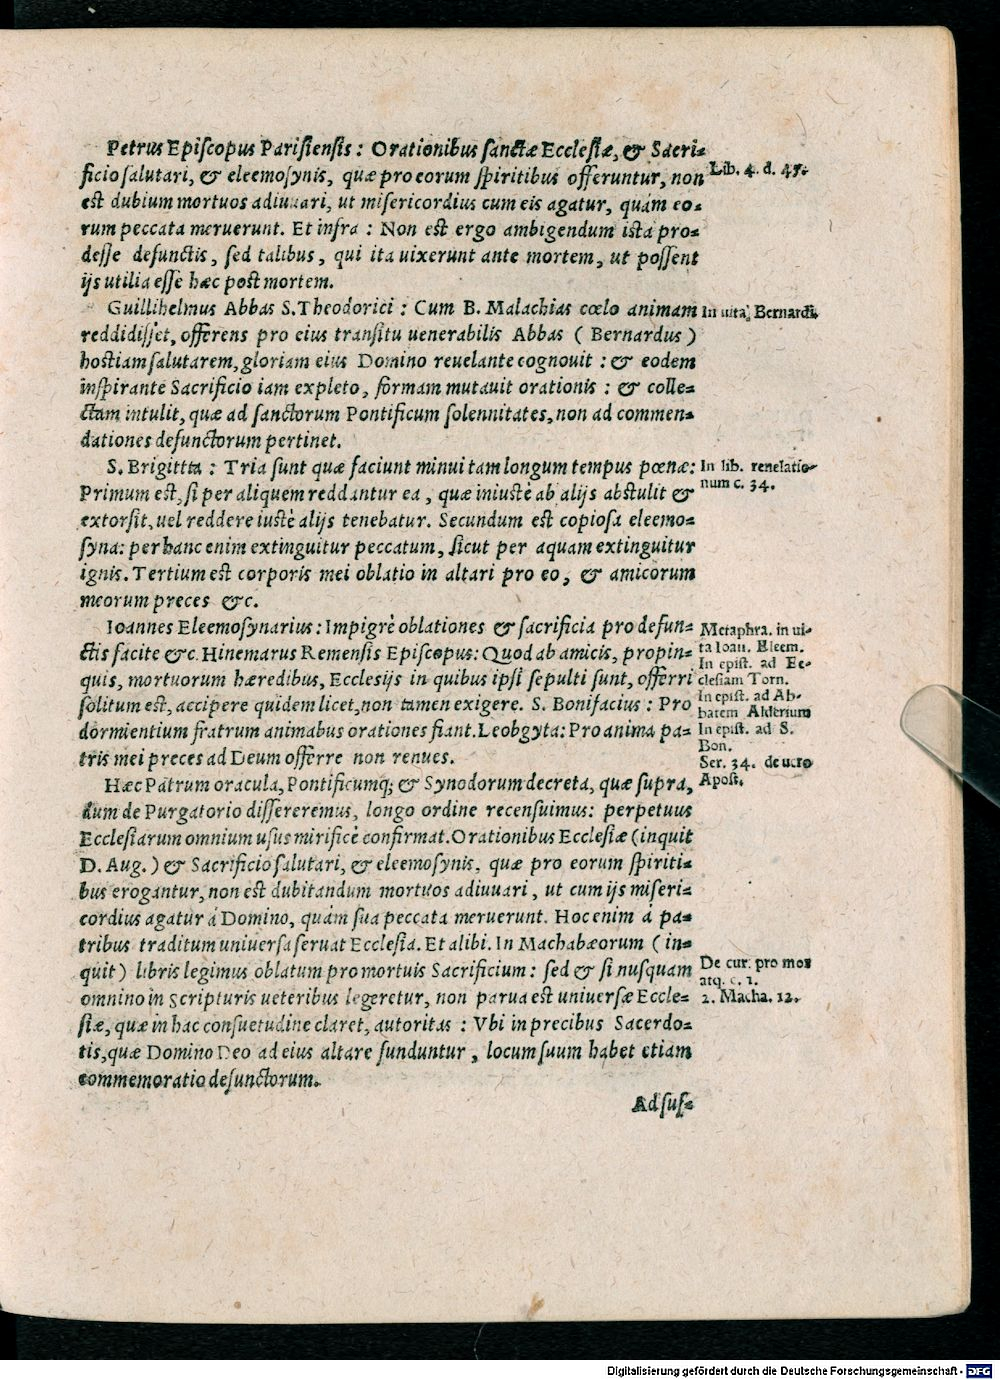 Petrus Episcopus Parisiensis : Orationibus sanctæ Ecclesiæ, & Sacri-
ficio salutari, & eleemosynis, quæ pro eorum spiritibus offeruntur, non
est dubium mortuos adiuuari, ut misericordius cum eis agatur, quám eo-
rum peccata meruerunt. Et infra : Non est ergo ambigendum ista pro-
desse defunctis, sed talibus, qui ita uixerunt ante mortem, ut possent
ijs utilia esse hæc post mortem.
Lib. 4. d. 45.
Guillihelmus Abbas S. Theodorici : Cum B. Malachias cœlo animam
reddidisset, offerens pro eius transitu uenerabilis Abbas ( Bernardus )
hostiam salutarem, gloriam eius Domino reuelante cognouit : & eodem
inspirante Sacrificio iam expleto, formam mutauit orationis : & colle-
ctam intulit, quæ ad sanctorum Pontificum solennitates, non ad commen-
dationes defunctorum pertinet.
In uita Bernardi.
S. Brigitta : Tria sunt quæ faciunt minui tam longum tempus pœnæ:
Primum est, si per aliquem reddantur ea, quæ iniustè ab alijs abstulit &
extorsit, uel reddere iustè alijs tenebatur. Secundum est copiosa eleemo-
syna: per hanc enim extinguitur peccatum, sicut per aquam extinguitur
ignis. Tertium est corporis mei oblatio in altari pro eo, & amicorum
meorum preces &c.
In lib. reuelatio-
num c. 34.
Ioannes Eleemosynarius : Impigrè oblationes & sacrificia pro defun-
ctis facite &c. Hinemarus Remensis Episcopus: Quod ab amicis, propin-
quis, mortuorum hæredibus, Ecclesijs in quibus ipsi sepulti sunt, offerri
solitum est, accipere quidem licet, non tamen exigere. S. Bonifacius : Pro
dormientium fratrum animabus orationes fiant. Leobgyta: Pro anima pa-
tris mei preces ad Deum offerre non renues.
Metaphra. in ui-
ta Ioan. Eleem.
In epist. ad Ec-
clesiam Torn.
In epist. ad Ab-
batem Alderium
In epist. ad S.
Bon.
Ser. 34. de uero
Apost.
Hæc Patrum oracula, Pontificumq; & Synodorum decreta, quæ supra,
dum de Purgatorio dissereremus, longo ordine recensuimus: perpetuus
Ecclesiarum omnium usus mirificè confirmat. Orationibus Ecclesiæ (inquit
D. Aug.) & Sacrificio salutari, & eleemosynis, quæ pro eorum spiriti-
bus erogantur, non est dubitandum mortuos adiuuari, ut cum ijs miseri-
cordius agatur á Domino, quám sua peccata meruerunt. Hoc enim á pa-
tribus traditum uniuersa seruat Ecclesia. Et alibi. In Machabæorum ( in-
quit ) libris legimus oblatum pro mortuis Sacrificium : sed & si nusquam
omnino in Scripturis ueteribus legeretur, non parua est uniuersæ Eccle-
siæ, quæ in hac consuetudine claret, autoritas : Vbi in precibus Sacerdo-
tis, quæ Domino Deo ad eius altare funduntur, locum suum habet etiam
commemoratio defunctorum.
De cur. pro mor
atq. c. 1.
2. Macha. 12.
Ad sus-
Digitalisierung gefördert durch die Deutsche Forschungsgemeinschaft - DFG